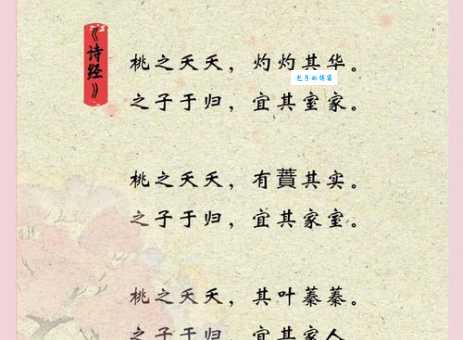 《诗经》
桃之夭夭，灼灼其华。
之子于归，宜其室家。
桃之夭夭，有蕡其实。
之子于归，宜其家室。
桃之夭夭，其叶蓁蓁。
之子于归，宜其家人